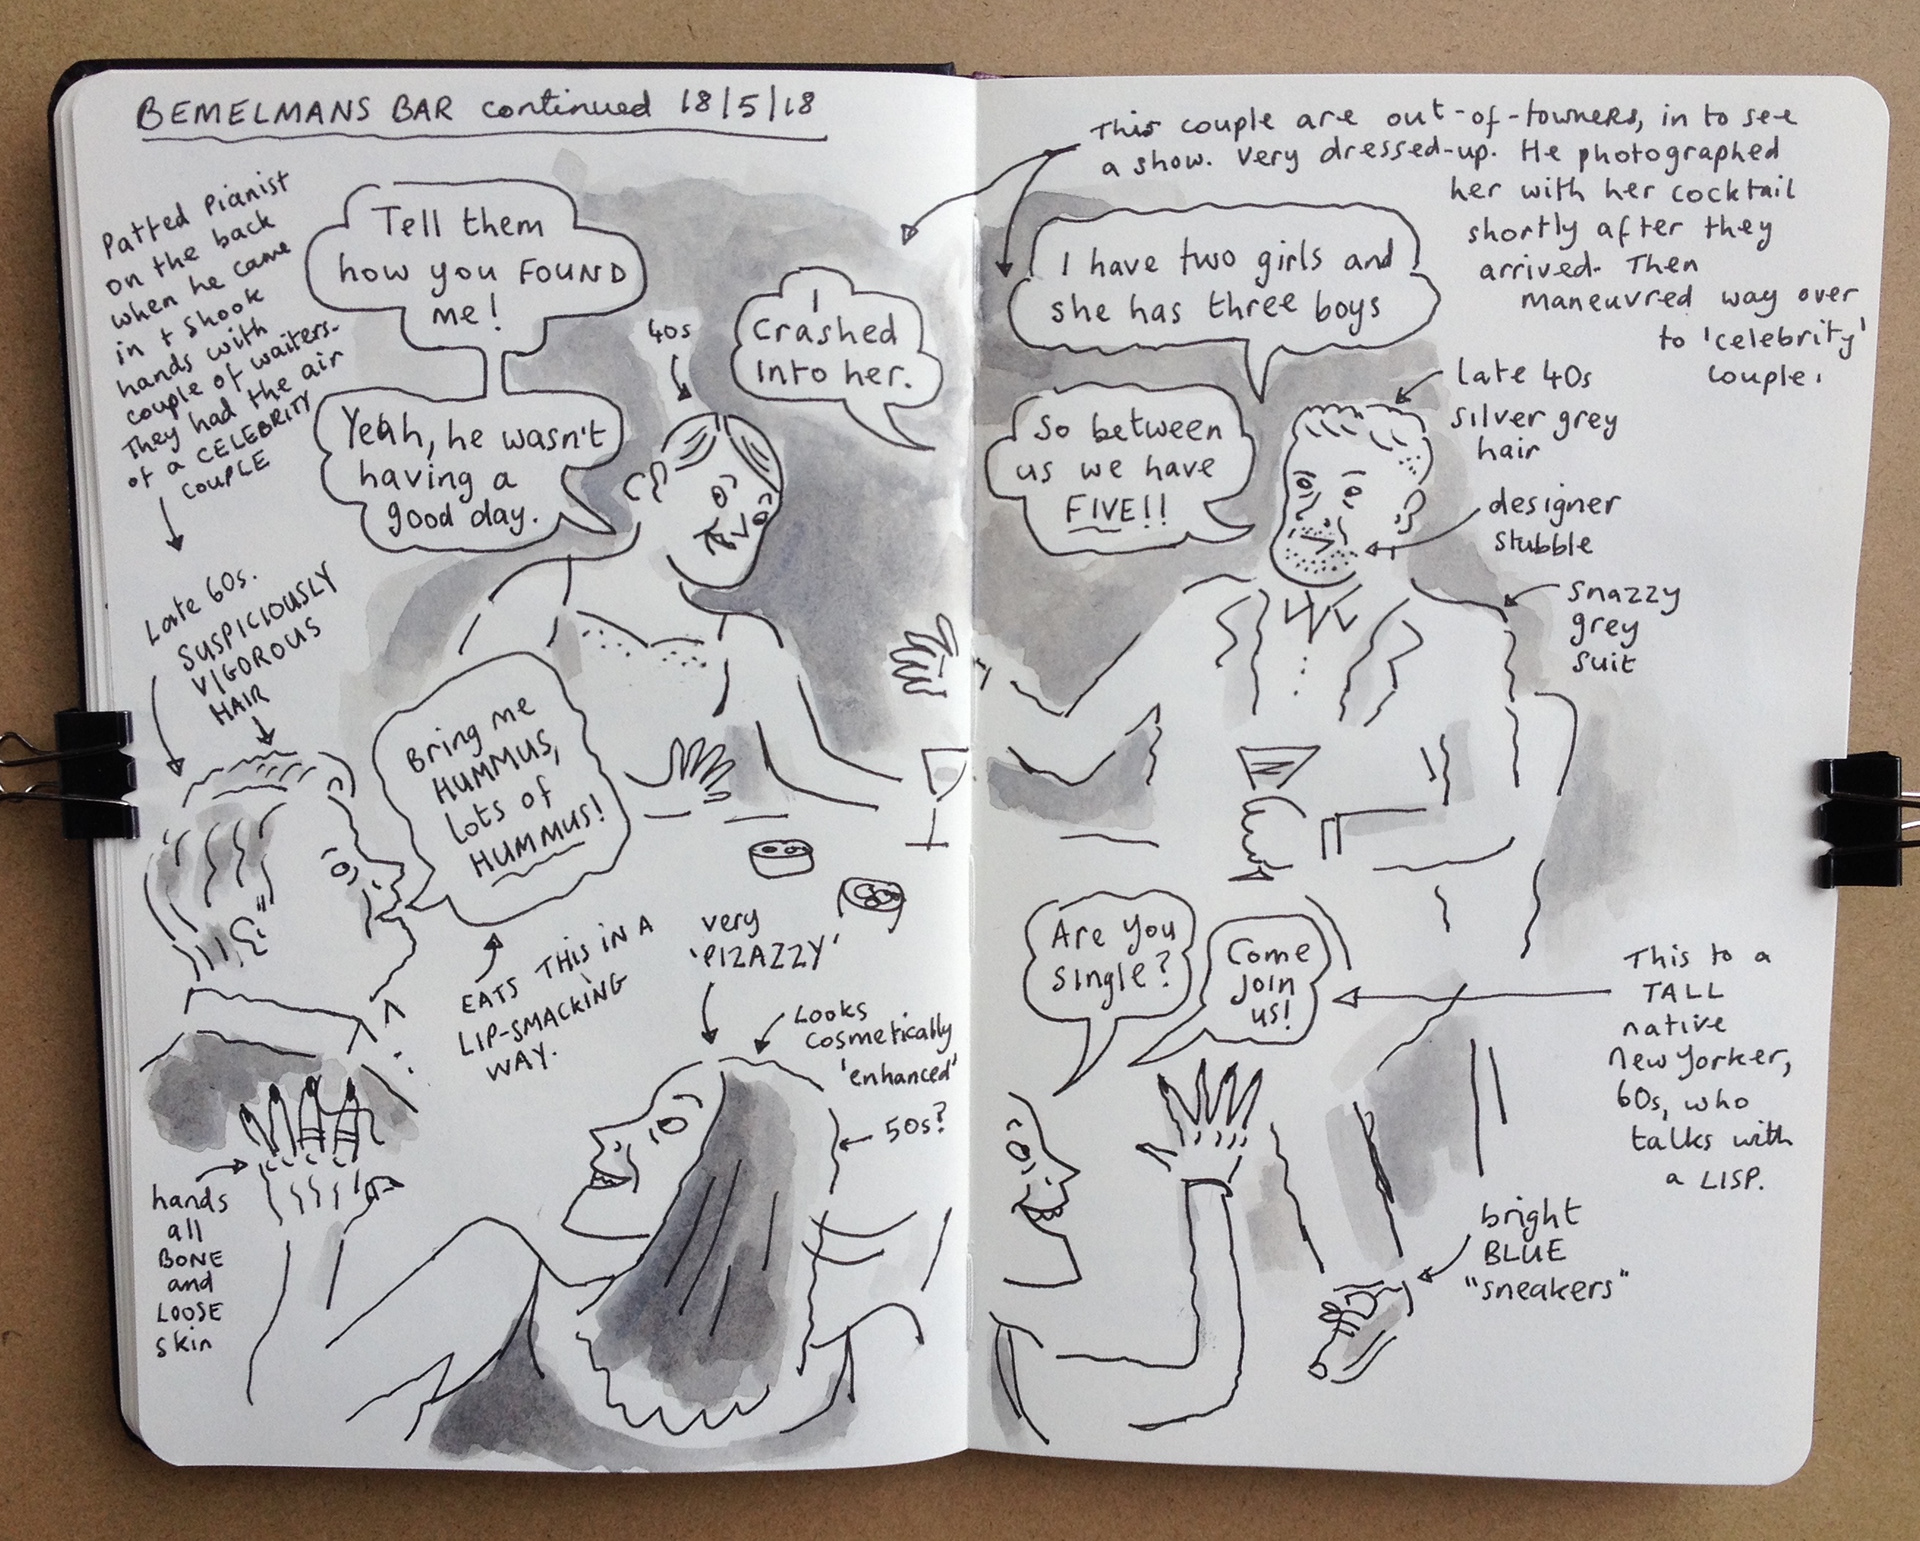 BEMELMANS BAR continued 18/5/18
Patted Pianist
on the back
when he came
in + shook
hands with
couple of waiters-
They had the air
of a CELEBRITY
COUPLE
Tell them
how you FOUND
me!
Yeah, he wasn't
having a
good day.
40s
I
crashed
into her.
Late 60s.
SUSPICIOUSLY
VIGOROUS
HAIR
Bring me
HUMMUS,
lots of
HUMMUS!
EATS THIS IN A
LIP-SMACKING
WAY.
very
'PIZAZZY'
Looks
cosmetically
'enhanced'
50s?
hands
all
BONE
and
LOOSE
skin
This couple are out-of-towners, in to see
a show. Very dressed-up. He photographed
her with her cocktail
shortly after they
arrived. Then
maneuvred way over
to 'celebrity'
couple.
I have two girls and
she has three boys
So between
us we have
FIVE!!
late 40s
silver grey
hair
designer
stubble
snazzy
grey
suit
Are you
single?
Come
join
us!
This to a
TALL
native
new yorker,
60s, who
talks with
a LISP.
bright
BLUE
"sneakers"